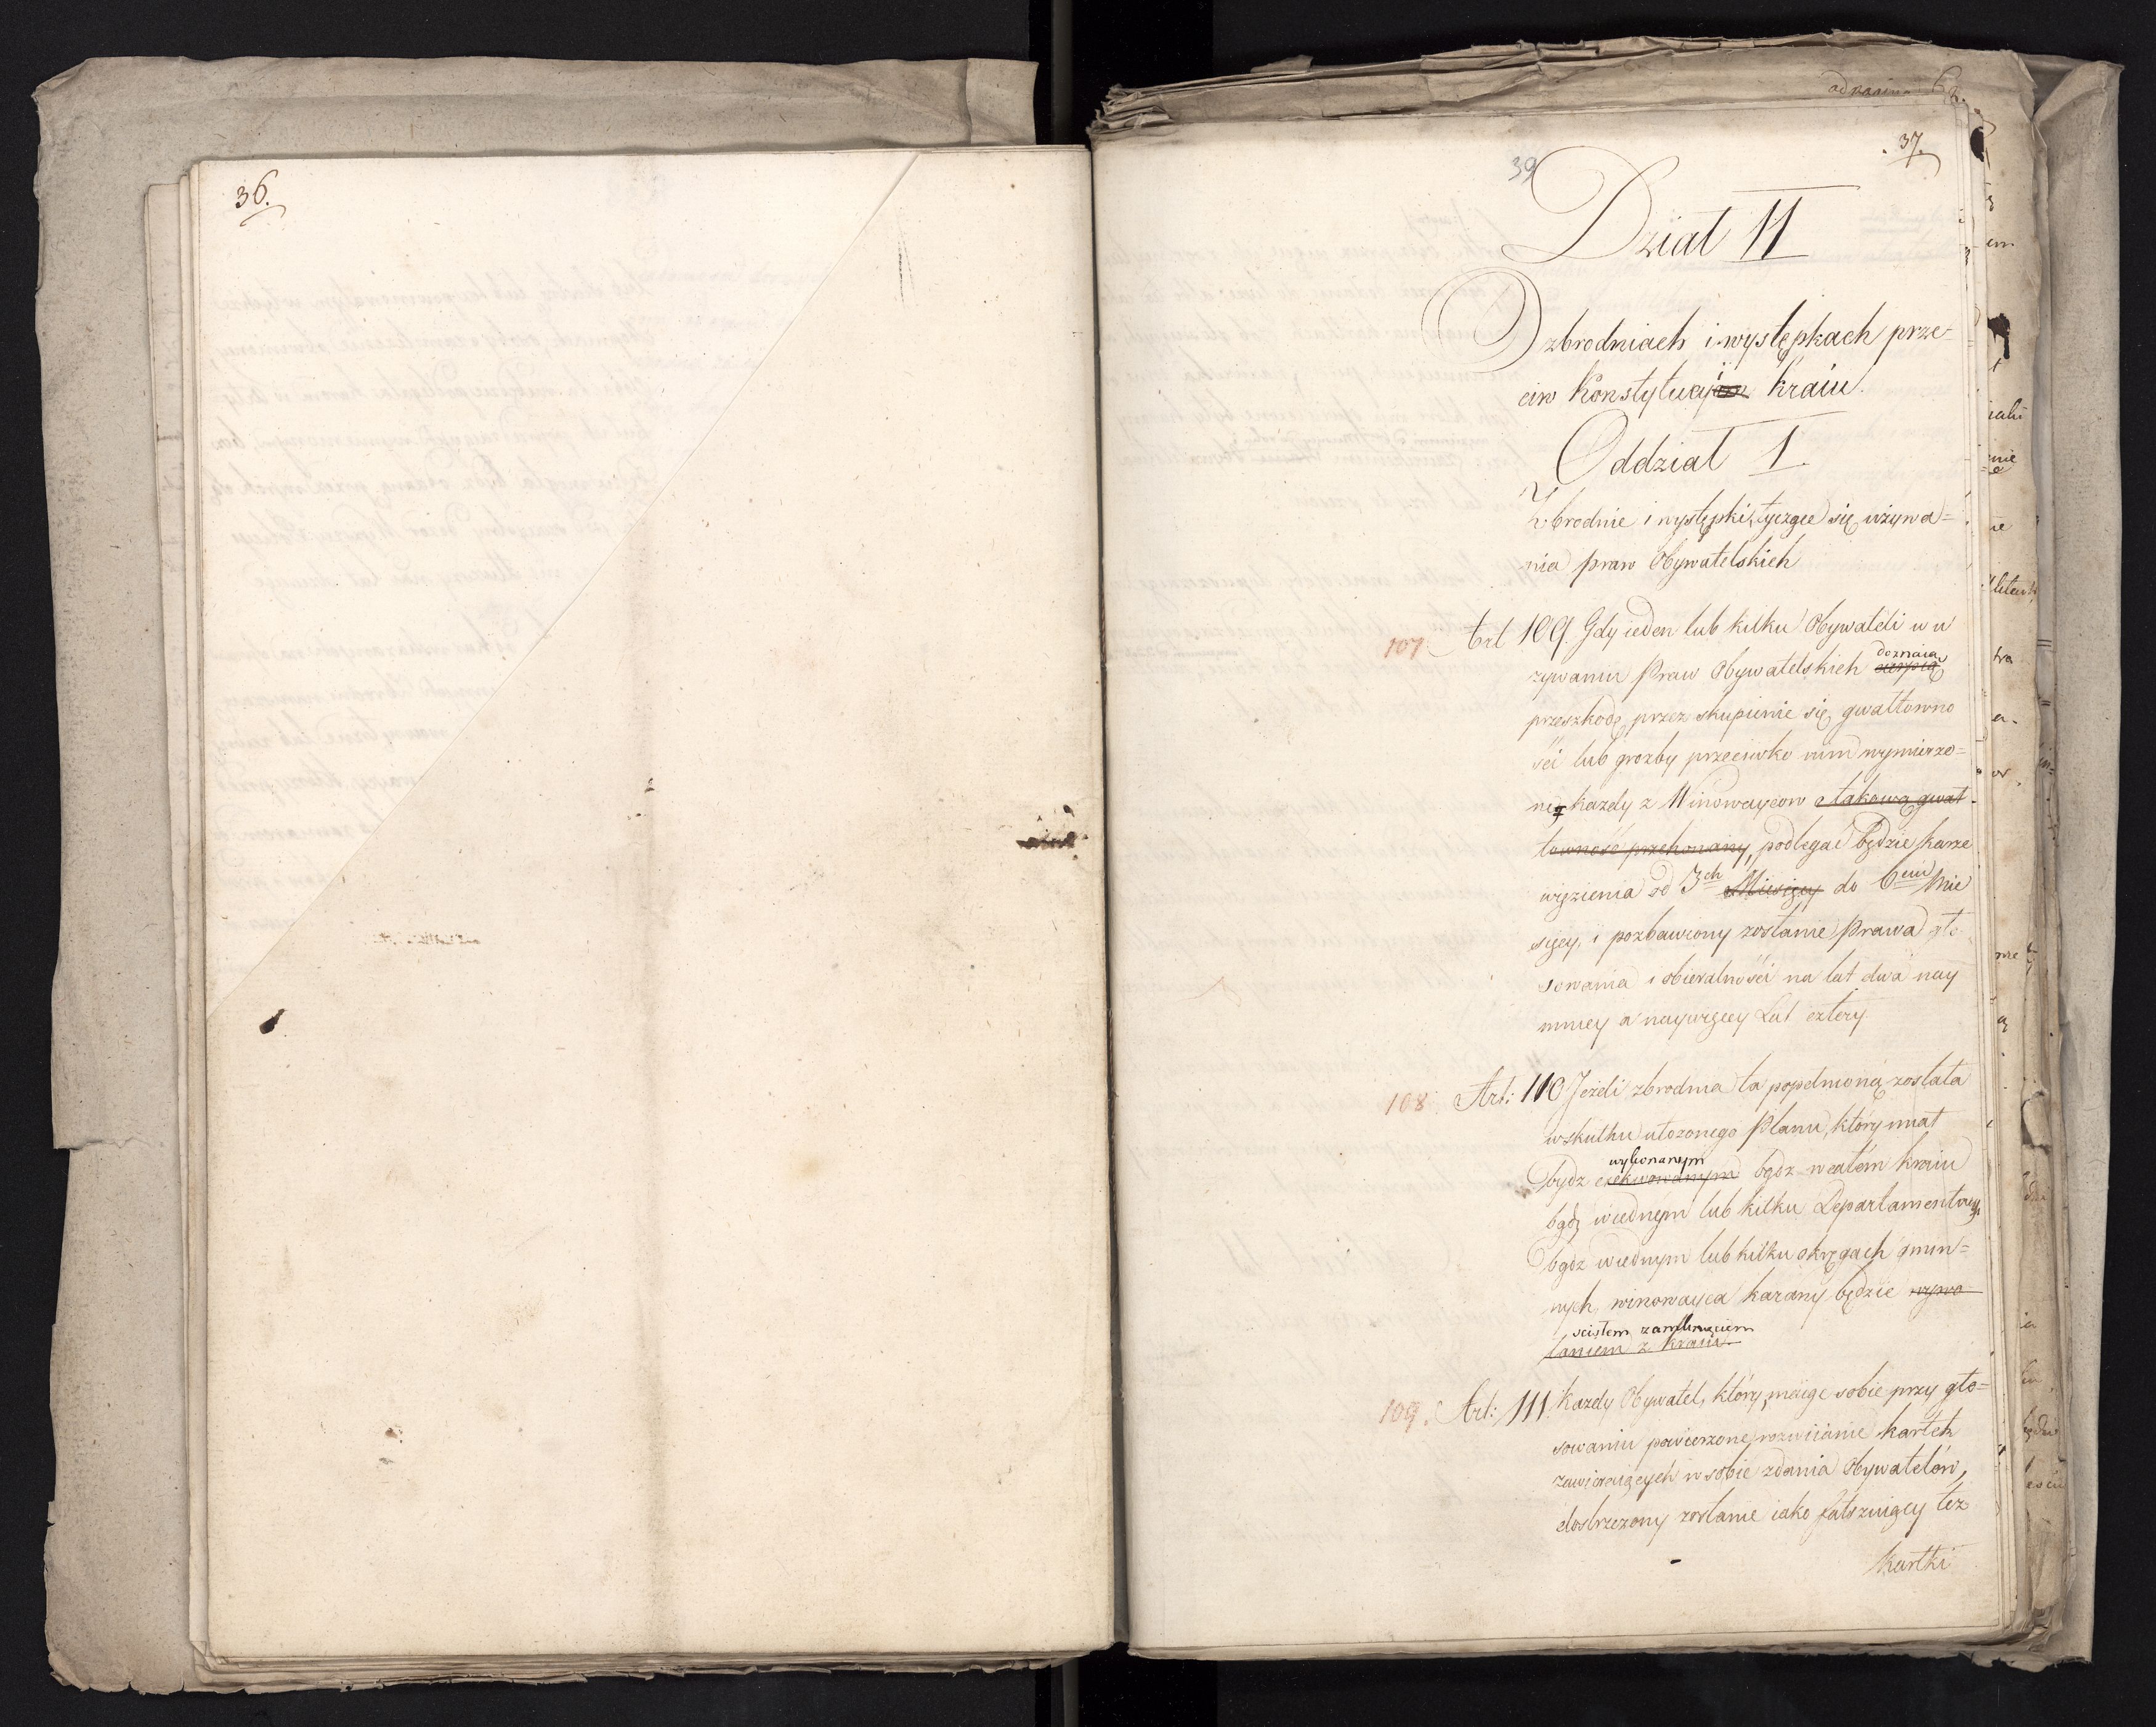 36.
37.
39
Dział II
O zbrodniach i występkach prze=
ciw Konstytucyi kraiu.
Oddział I.
Zbrodnie i występki, tyczące się używa=
nia praw Obywatelskich
107. Art 109. Gdy ieden lub kilku Obywateli w u
doznaią
żywaniu Praw Obywatelskich cierpią
przeszkodę przez skupienie się gwałtowno
ści lub groźby przeciwko nim wymierzo=
ne, każdy z Winowaycow o takową gwał
towność przekonany, podlegać będzie karze
więzienia od 3ch Miesięcy do 6ciu Mie
sięcy, i pozbawiony zostanie Prawa gło
sowania i obieralności na lat dwa nay
mniey a naywięcey Lat cztery.
108. Art: 110 Jeżeli zbrodnia ta popełnioną została
w skutku ułożonego Planu, który miał
wykonanym
bydź exekwowanym bądź w całem kraiu
bądź w iednym lub kilku Departamentach
bądź w iednym lub kilku okręgach gmin=
nych, winowayca karany będzie wywo
scisłem zamknięciem
łaniem z kraiu.
109. Art: 111. Każdy Obywatel, który, maiąc sobie przy gło=
sowaniu powierzone rozwiianie kartek
zawieraiących w sobie zdania Obywatelów,
dostrzeżony zostanie iako fałszuiący też
kartki